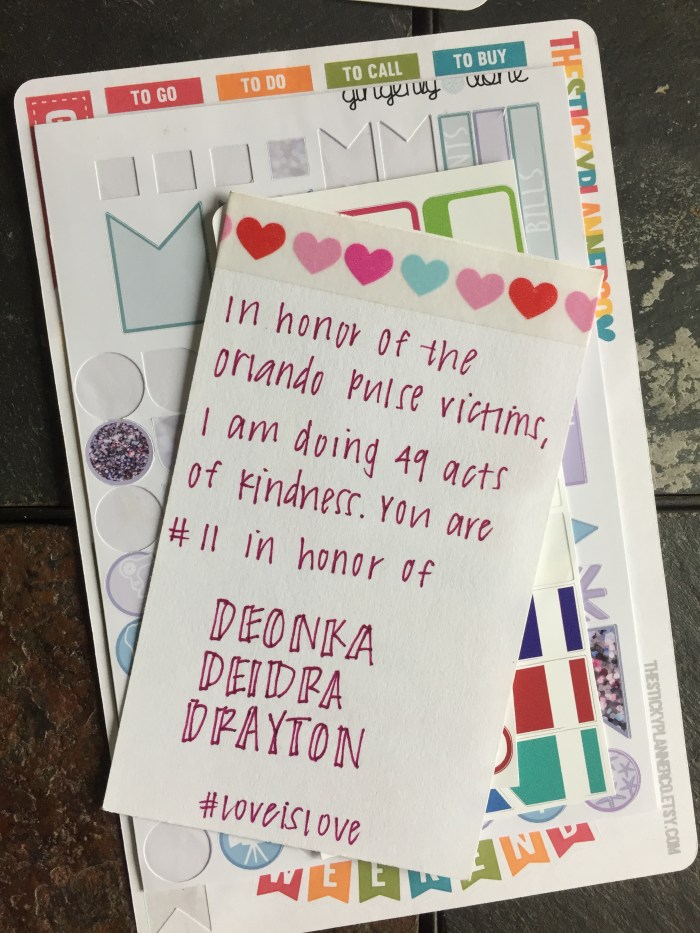 TO GO
TO DO
TO CALL
TO BUY
BILLS
In honor of the
Orlando Pulse victims,
I am doing 49 acts
of kindness. You are
#11 in honor of
DEONKA
DEIDRA
DRAYTON
#loveislove
THESTICKYPLANNERCO.ETSY.COM
WEEKEND